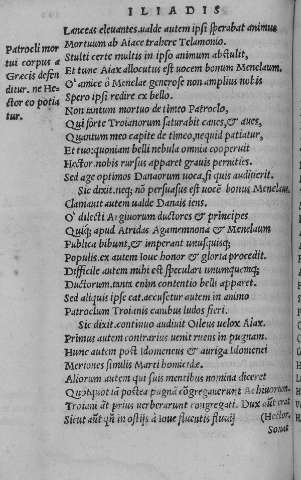 ILIADIS
Lanceas eleuantes. ualde autem ipsi sperabat animus
Mortuum ab Aiace trahere Telamonio.
Patrocli mor
Stulti certe multis in ipso animam abstulit,
tui corpus a
Et tunc Aiax allocutus est uocem bonum Menelaum.
Græcis defen
O' amice ô Menelae generose non amplius nobis
ditur. ne He
Spero ipsi redire ex bello.
ctor eo potia
Non tantum mortuo de timeo Patroclo,
tur.
Qui forte Troianorum saturabit canes, & aues,
Quantum meo capite de timeo, nequid patiatur,
Et tuo: quoniam belli nebula omnia cooperuit
Hector. nobis rursus apparet grauis pernities.
Sed age optimos Danaorum uoca, si quis audiuerit.
Sic dixit. neq; nō persuasus est uocē bonus Menelaus.
Clamauit autem ualde Danais iens.
O' dilecti Argiuorum ductores & principes
Quiq; apud Atridas Agamemnona & Menelaum
Publica bibunt, & imperant unusquisq;
Populis. ex autem Ioue honor & gloria procedit.
Difficile autem mihi est speculari unumquemq;
Ductorum. tanta enim contentio belli apparet.
Sed aliquis ipse eat. accusetur autem in animo
Patroclum Troianis canibus ludos fieri.
Sic dixit. continuo audiuit Oileus uelox Aiax.
Primus autem contrarius uenit ruens in pugnam.
Hunc autem post Idomeneus & auriga Idomenei
Meriones similis Marti homicidæ.
Aliorum autem qui suis mentibus nomina diceret
Quotquot ia postea pugnā cōgregauerunt Achiuorum.
Troiani āt prius uerberarunt congregati. Dux aūt erat
Sicut aūt qn̄ in ostijs à Ioue fluentis fluuij
(Hector,
Sonat